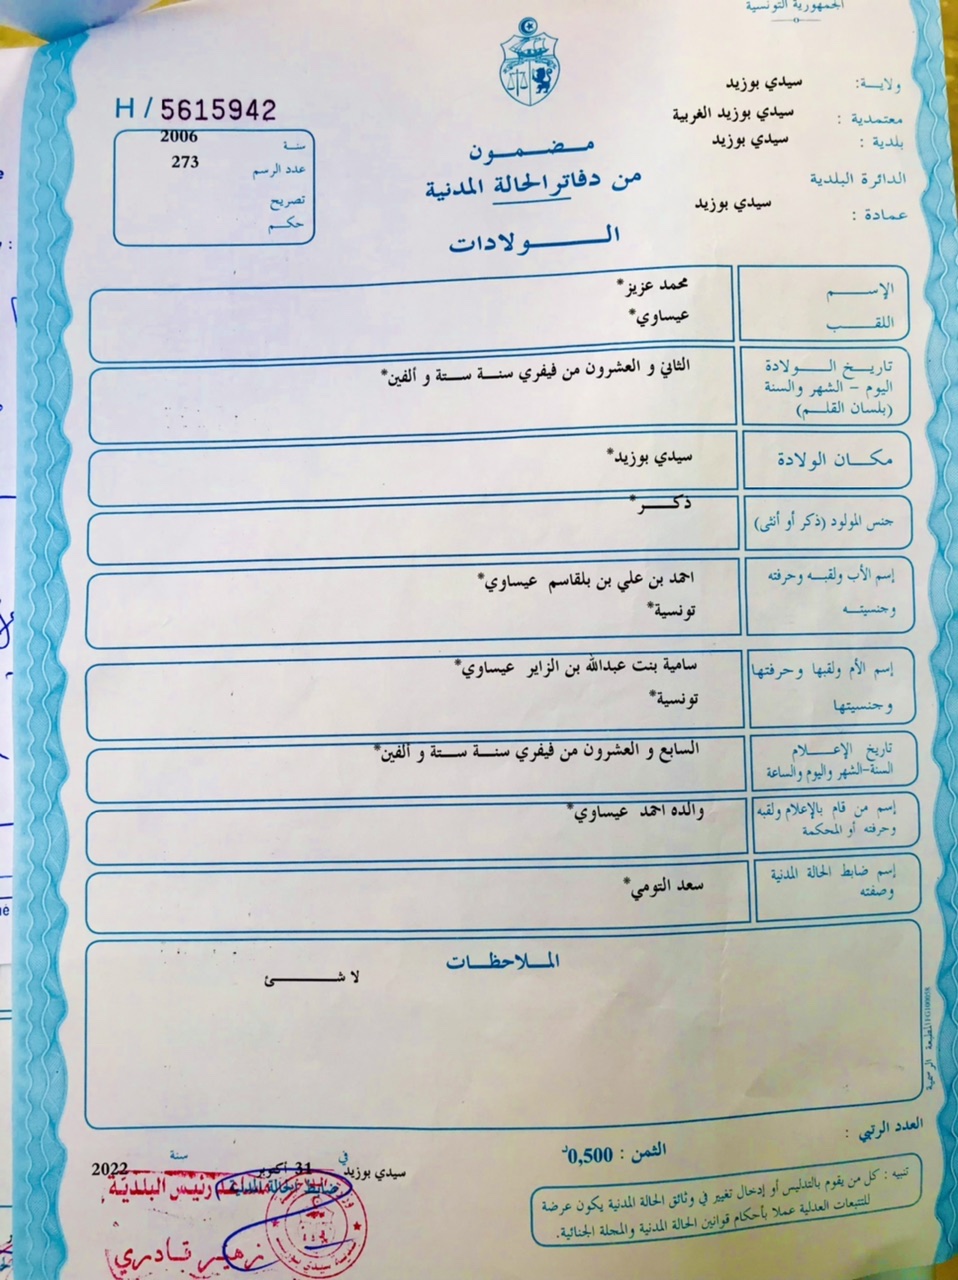 الجمهورية التونسية
ولاية: سيدي بوزيد
معتمدية : سيدي بوزيد الغربية
بلدية : سيدي بوزيد
الدائرة البلدية
عمادة : سيدي بوزيد
H / 5615942
سنة 2006
عدد الرسم 273
تصريح
حكم
مضمون
من دفاتر الحالة المدنية
الولادات
الإسم محمد عزيز*
اللقب عيساوي*
تاريخ الولادة الثاني و العشرون من فيفري سنة ستة و ألفين*
اليوم - الشهر والسنة
(بلسان القلم)
مكان الولادة سيدي بوزيد*
جنس المولود (ذكر أو أنثى) ذكر*
إسم الأب ولقبه وحرفته احمد بن علي بن بلقاسم عيساوي*
وجنسيته تونسية*
إسم الأم ولقبها وحرفتها سامية بنت عبدالله بن الزاير عيساوي*
وجنسيتها تونسية*
تاريخ الإعلام السابع و العشرون من فيفري سنة ستة و ألفين*
السنة-الشهر واليوم والساعة
إسم من قام بالإعلام ولقبه والده احمد عيساوي*
وحرفته أو المحكمة
إسم ضابط الحالة المدنية سعد التومي*
وصفته
الملاحظات
لا شئ
المطبعة الرسمية
العدد الرتبي :
الثمن : 0,500د
تنبيه : كل من يقوم بالتدليس أو إدخال تغيير في وثائق الحالة المدنية يكون عرضة
للتتبعات العدلية عملا بأحكام قوانين الحالة المدنية والمجلة الجنائية.
سيدي بوزيد في 31 أكتوبر سنة 2022
ضابط الحالة المدنية
رئيس البلدية
زهير قادري